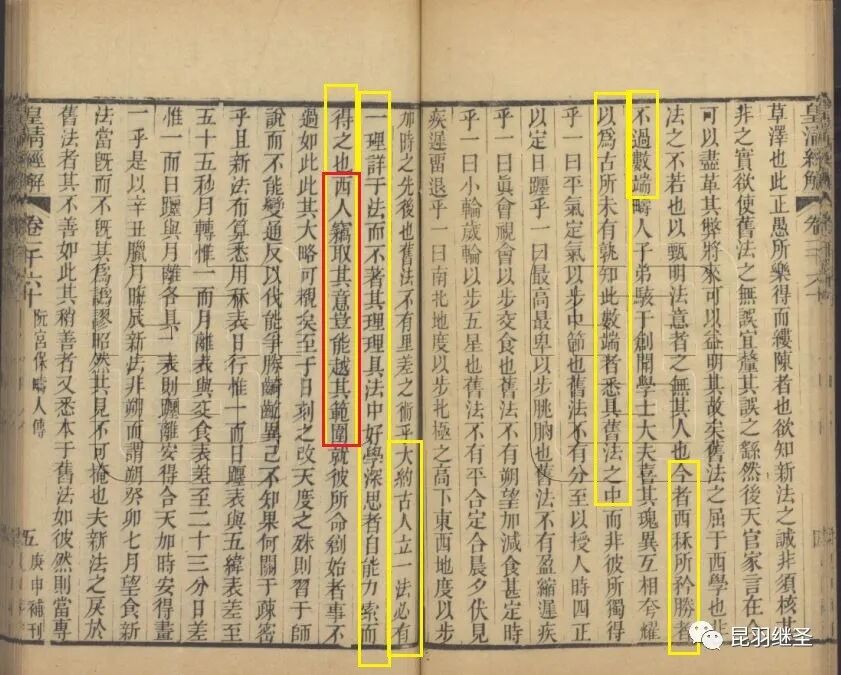 皇淸經解
草澤也此正愚所樂得而縷陳者也欲知新法之誠非須核其
非之實欲使舊法之無誤宜釐其誤之繇然後天官家言在今
可以盡革其弊將來可以益明其故矣舊法之屈于西學也非
法之不若也以甄明法意者之無其人也今者西秝所矜勝者
不過數端疇人子弟駭于創聞學士大夫喜其瑰異互相夸耀
以爲古所未有孰知此數端者悉具舊法之中而非彼所獨得
乎一曰平氣定氣以步中節也舊法不有分至以授人時四正
以定日躔乎一曰最高最卑以步朓朒也舊法不有盈縮遲疾
乎一曰眞會視會以步交食也舊法不有朔望加減食甚定時
乎一曰小輪歲輪以步五星也舊法不有平合定合晨夕伏見
疾遲雷退乎一曰南北地度以步北極之高下東西地度以步
加時之先後也舊法不有里差之術乎大約古人立一法必有
一理詳于法而不著其理理具法中好學深思者自能力索而
得之也西人竊取其意豈能越其範圍就彼所命創始者事不
過如此此其大略可覩矣至于日刻之改天度之殊則習于師
說而不能變通反以伐能爭勝齮齕異己不知果何關于疎密
乎且新法布算悉用秝表日行惟一而日躔表與五緯表差至
五十五秒月轉惟一而月離表與交食表差至二十三分日差
惟一而日躔與月離各具一表則躔離安得合天加時安得畫
一乎是以辛丑臘月晦辰新法非朔而謂朔癸卯七月望食新
法當旣而不旣其爲譌謬昭然其見不可掩也夫新法之戾於
舊法者其不善如此其稍善者又悉本于舊法如彼然則當專
皇淸經解 卷一千六十 阮宮保疇人傳 五 庚申補刊
昆羽继圣